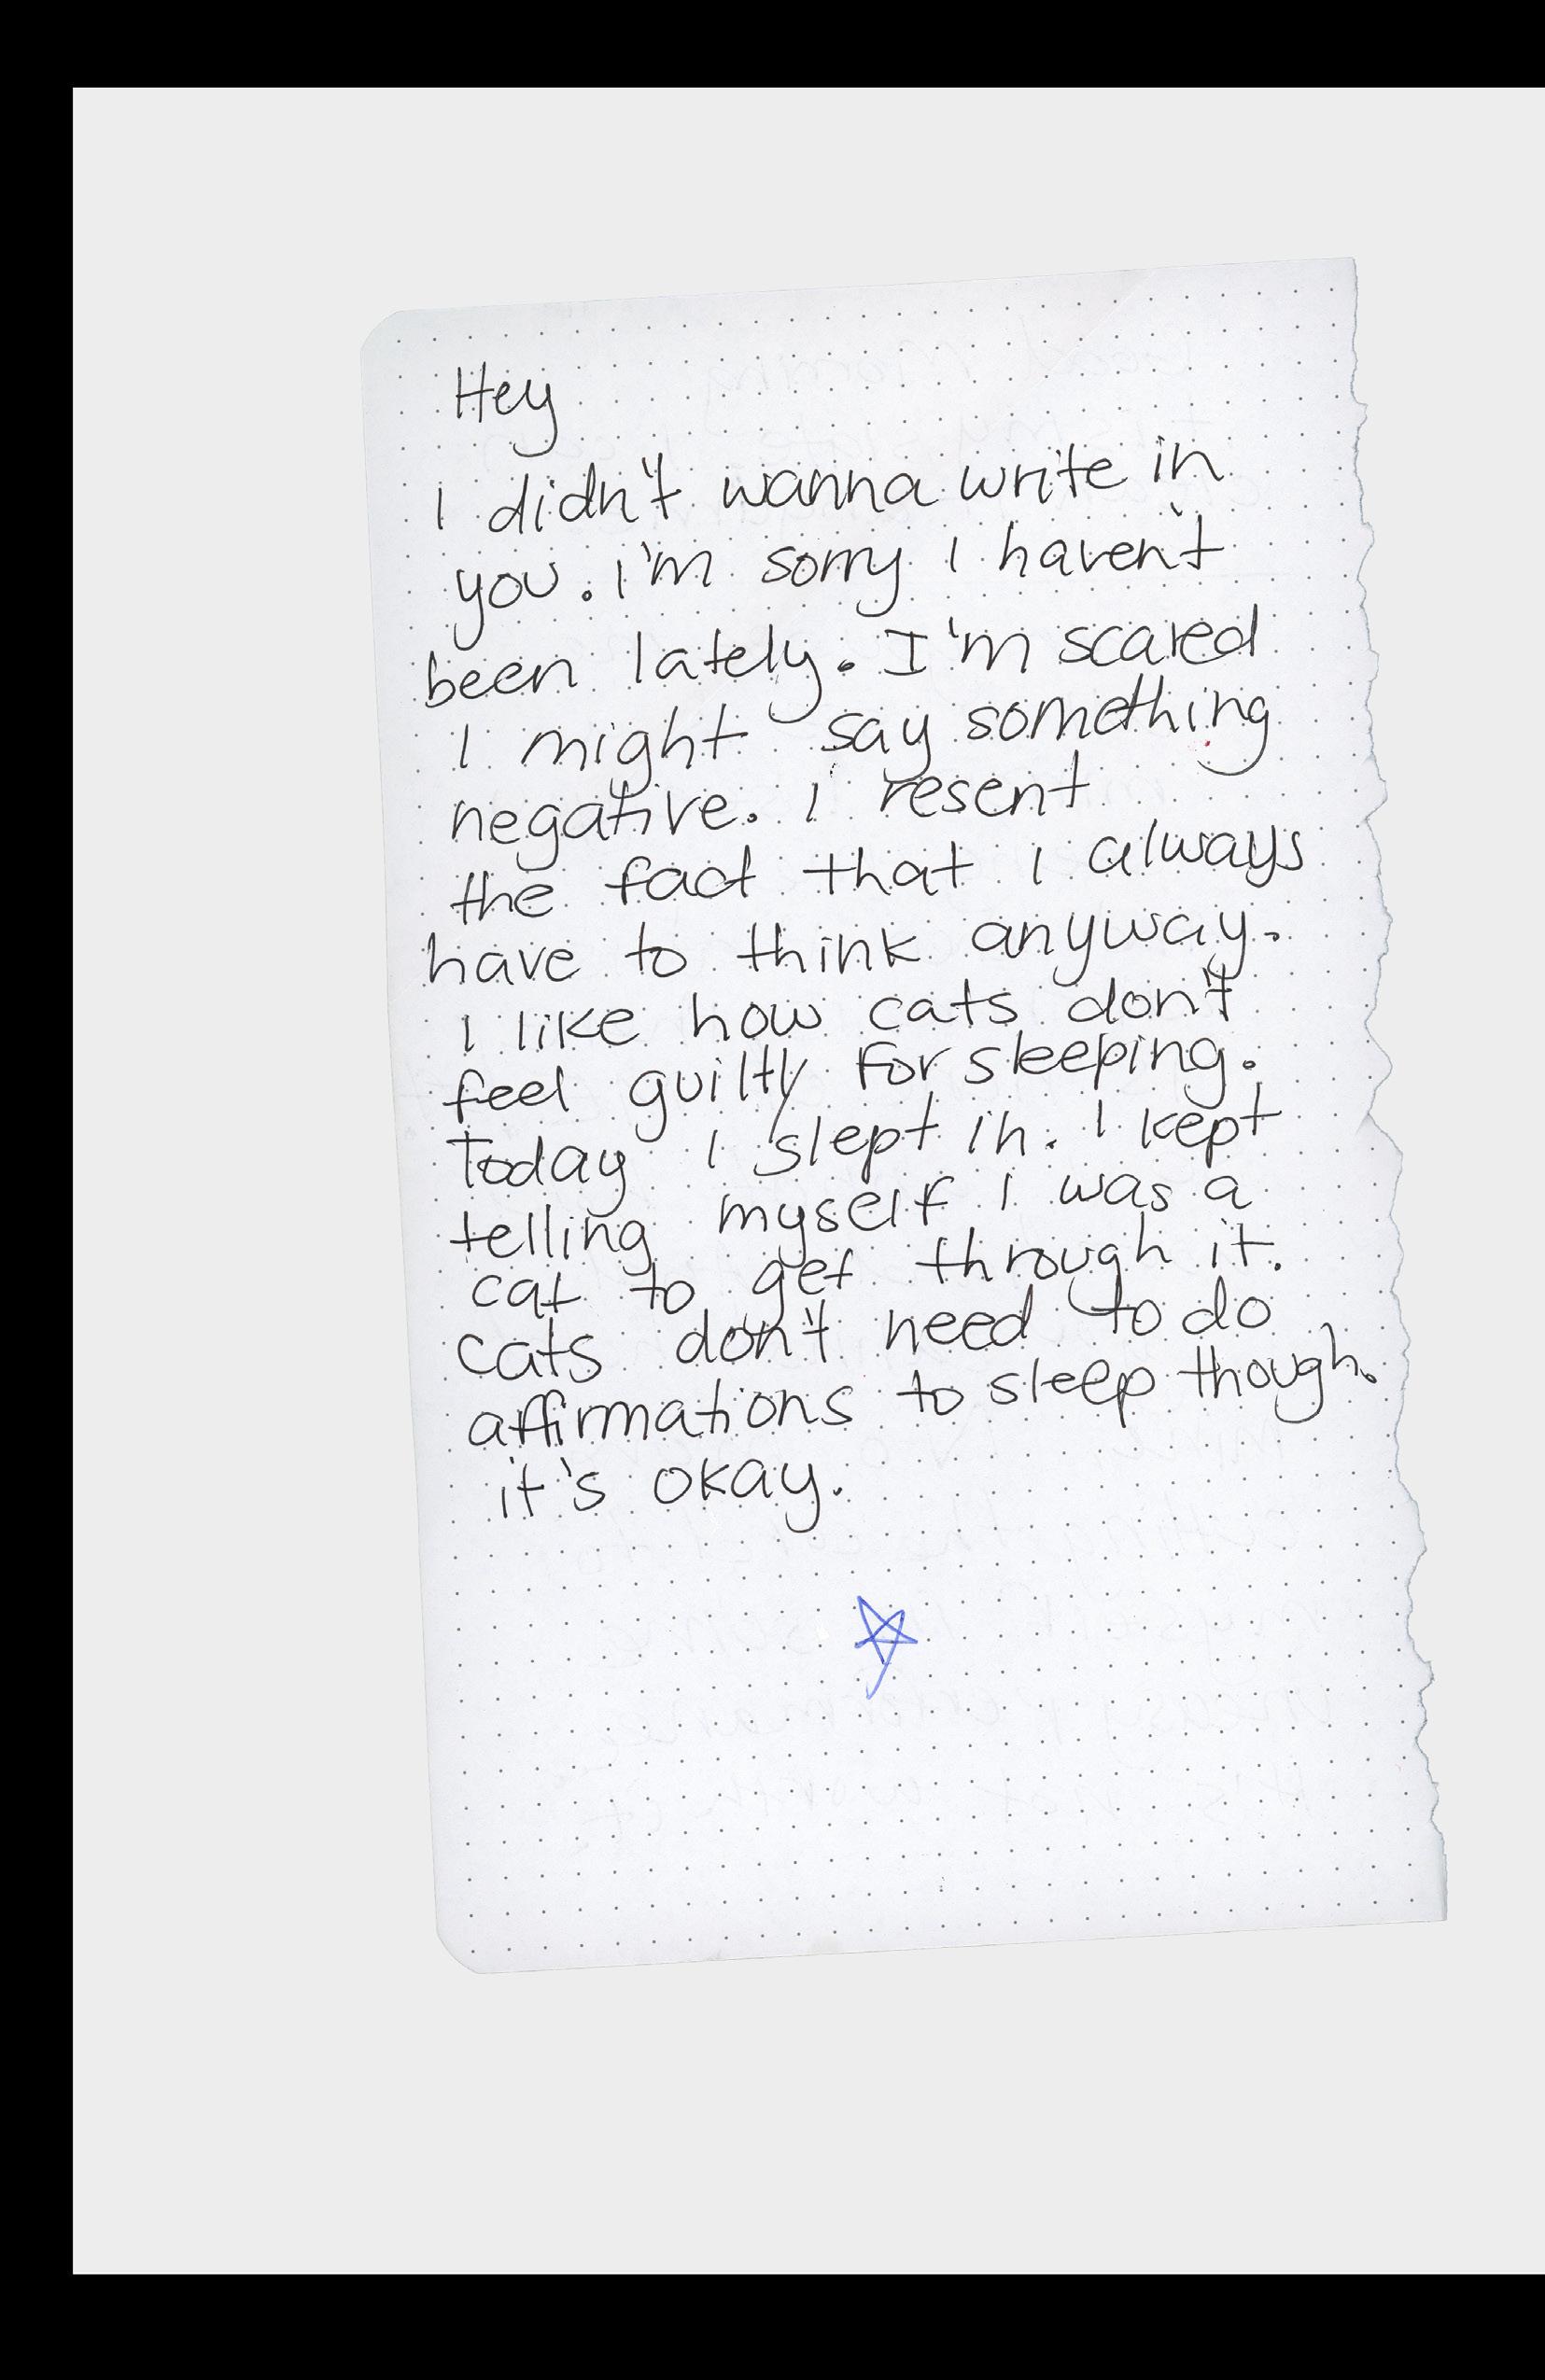 Hey
I didn't wanna write in
you. i'm sorry I haven't
been lately. I'm scared
I might say something
negative. I resent
the fact that I always
have to think anyway.
I like how cats don't
feel guilty for sleeping.
Today I slept in. I kept
telling myself I was a
cat to get through it.
cats don't need to do
affirmations to sleep though.
it's okay.